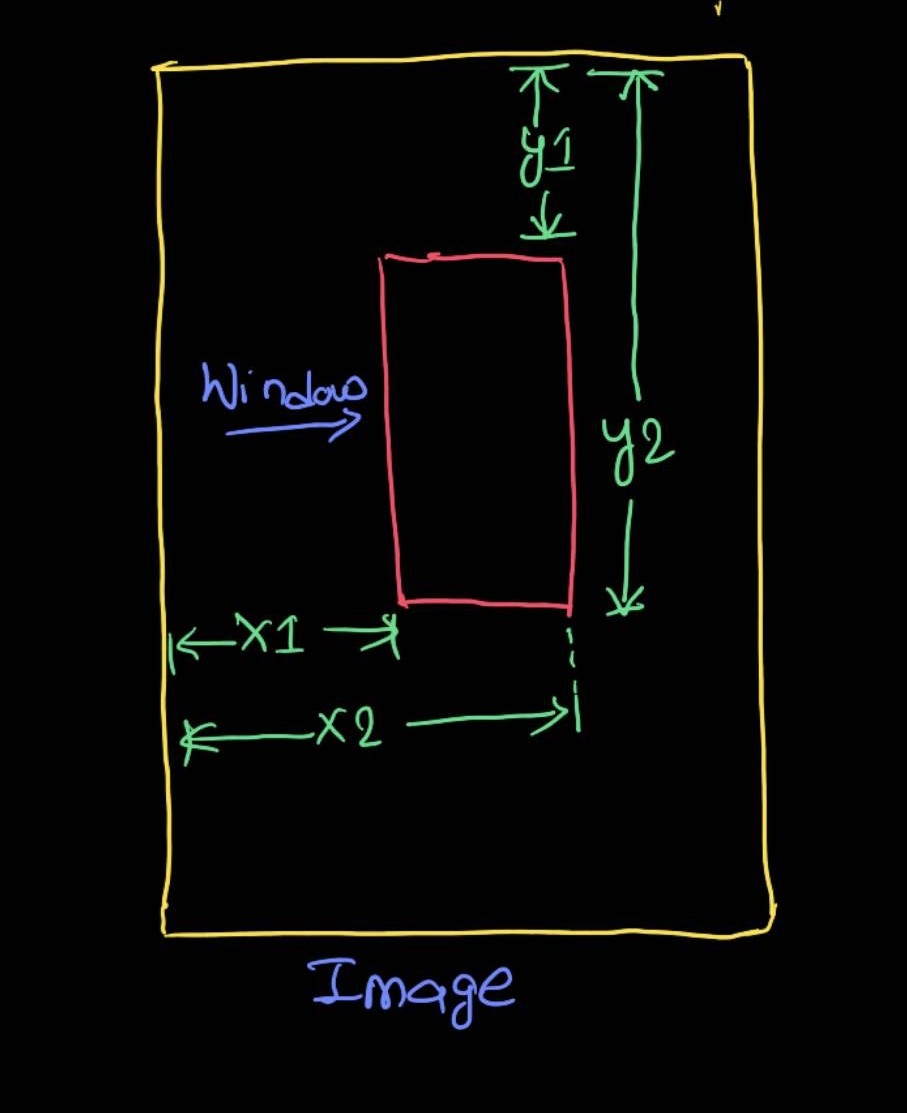 y1
Window
y2
X1
X2
Image